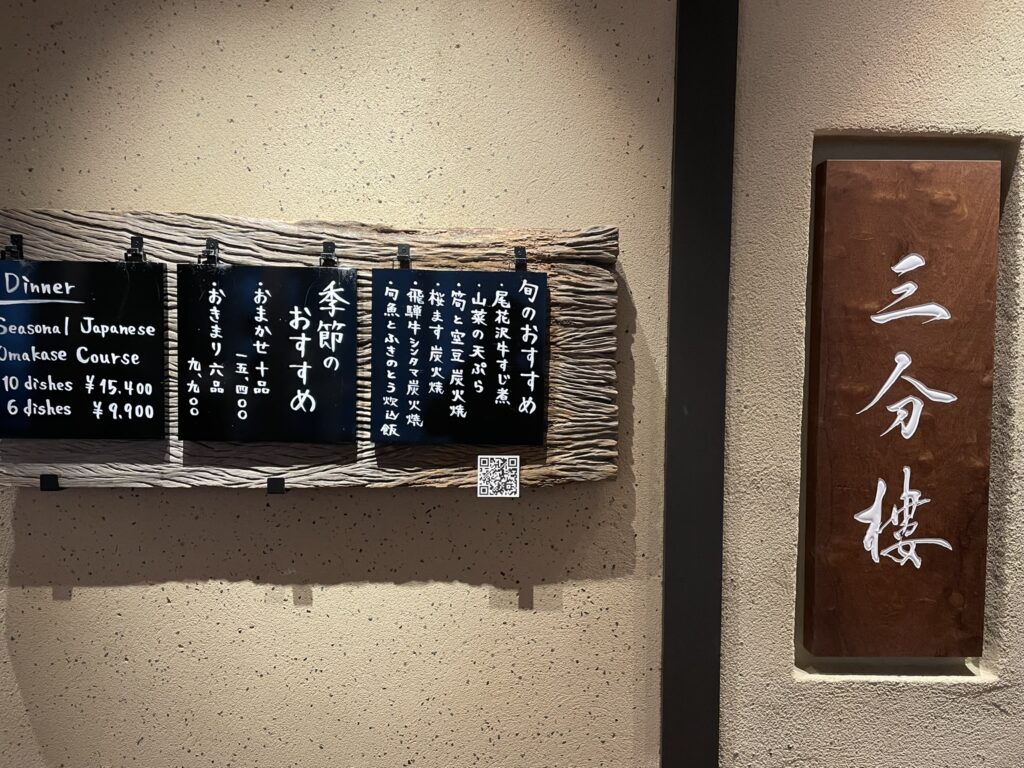 Dinner
Seasonal Japanese
Omakase Course
10 dishes ¥15.400
6 dishes ¥9,900
季節の
おすすめ
・おまかせ十品
一五、四〇〇
・おきまり六品
九、九〇〇
旬のおすすめ
・尾花沢牛すじ煮
・山菜の天ぷら
・筍と空豆 炭火焼
・桜ます 炭火焼
・飛騨牛シンタマ炭火焼
・旬魚とふきのとう炊込飯
三分樓